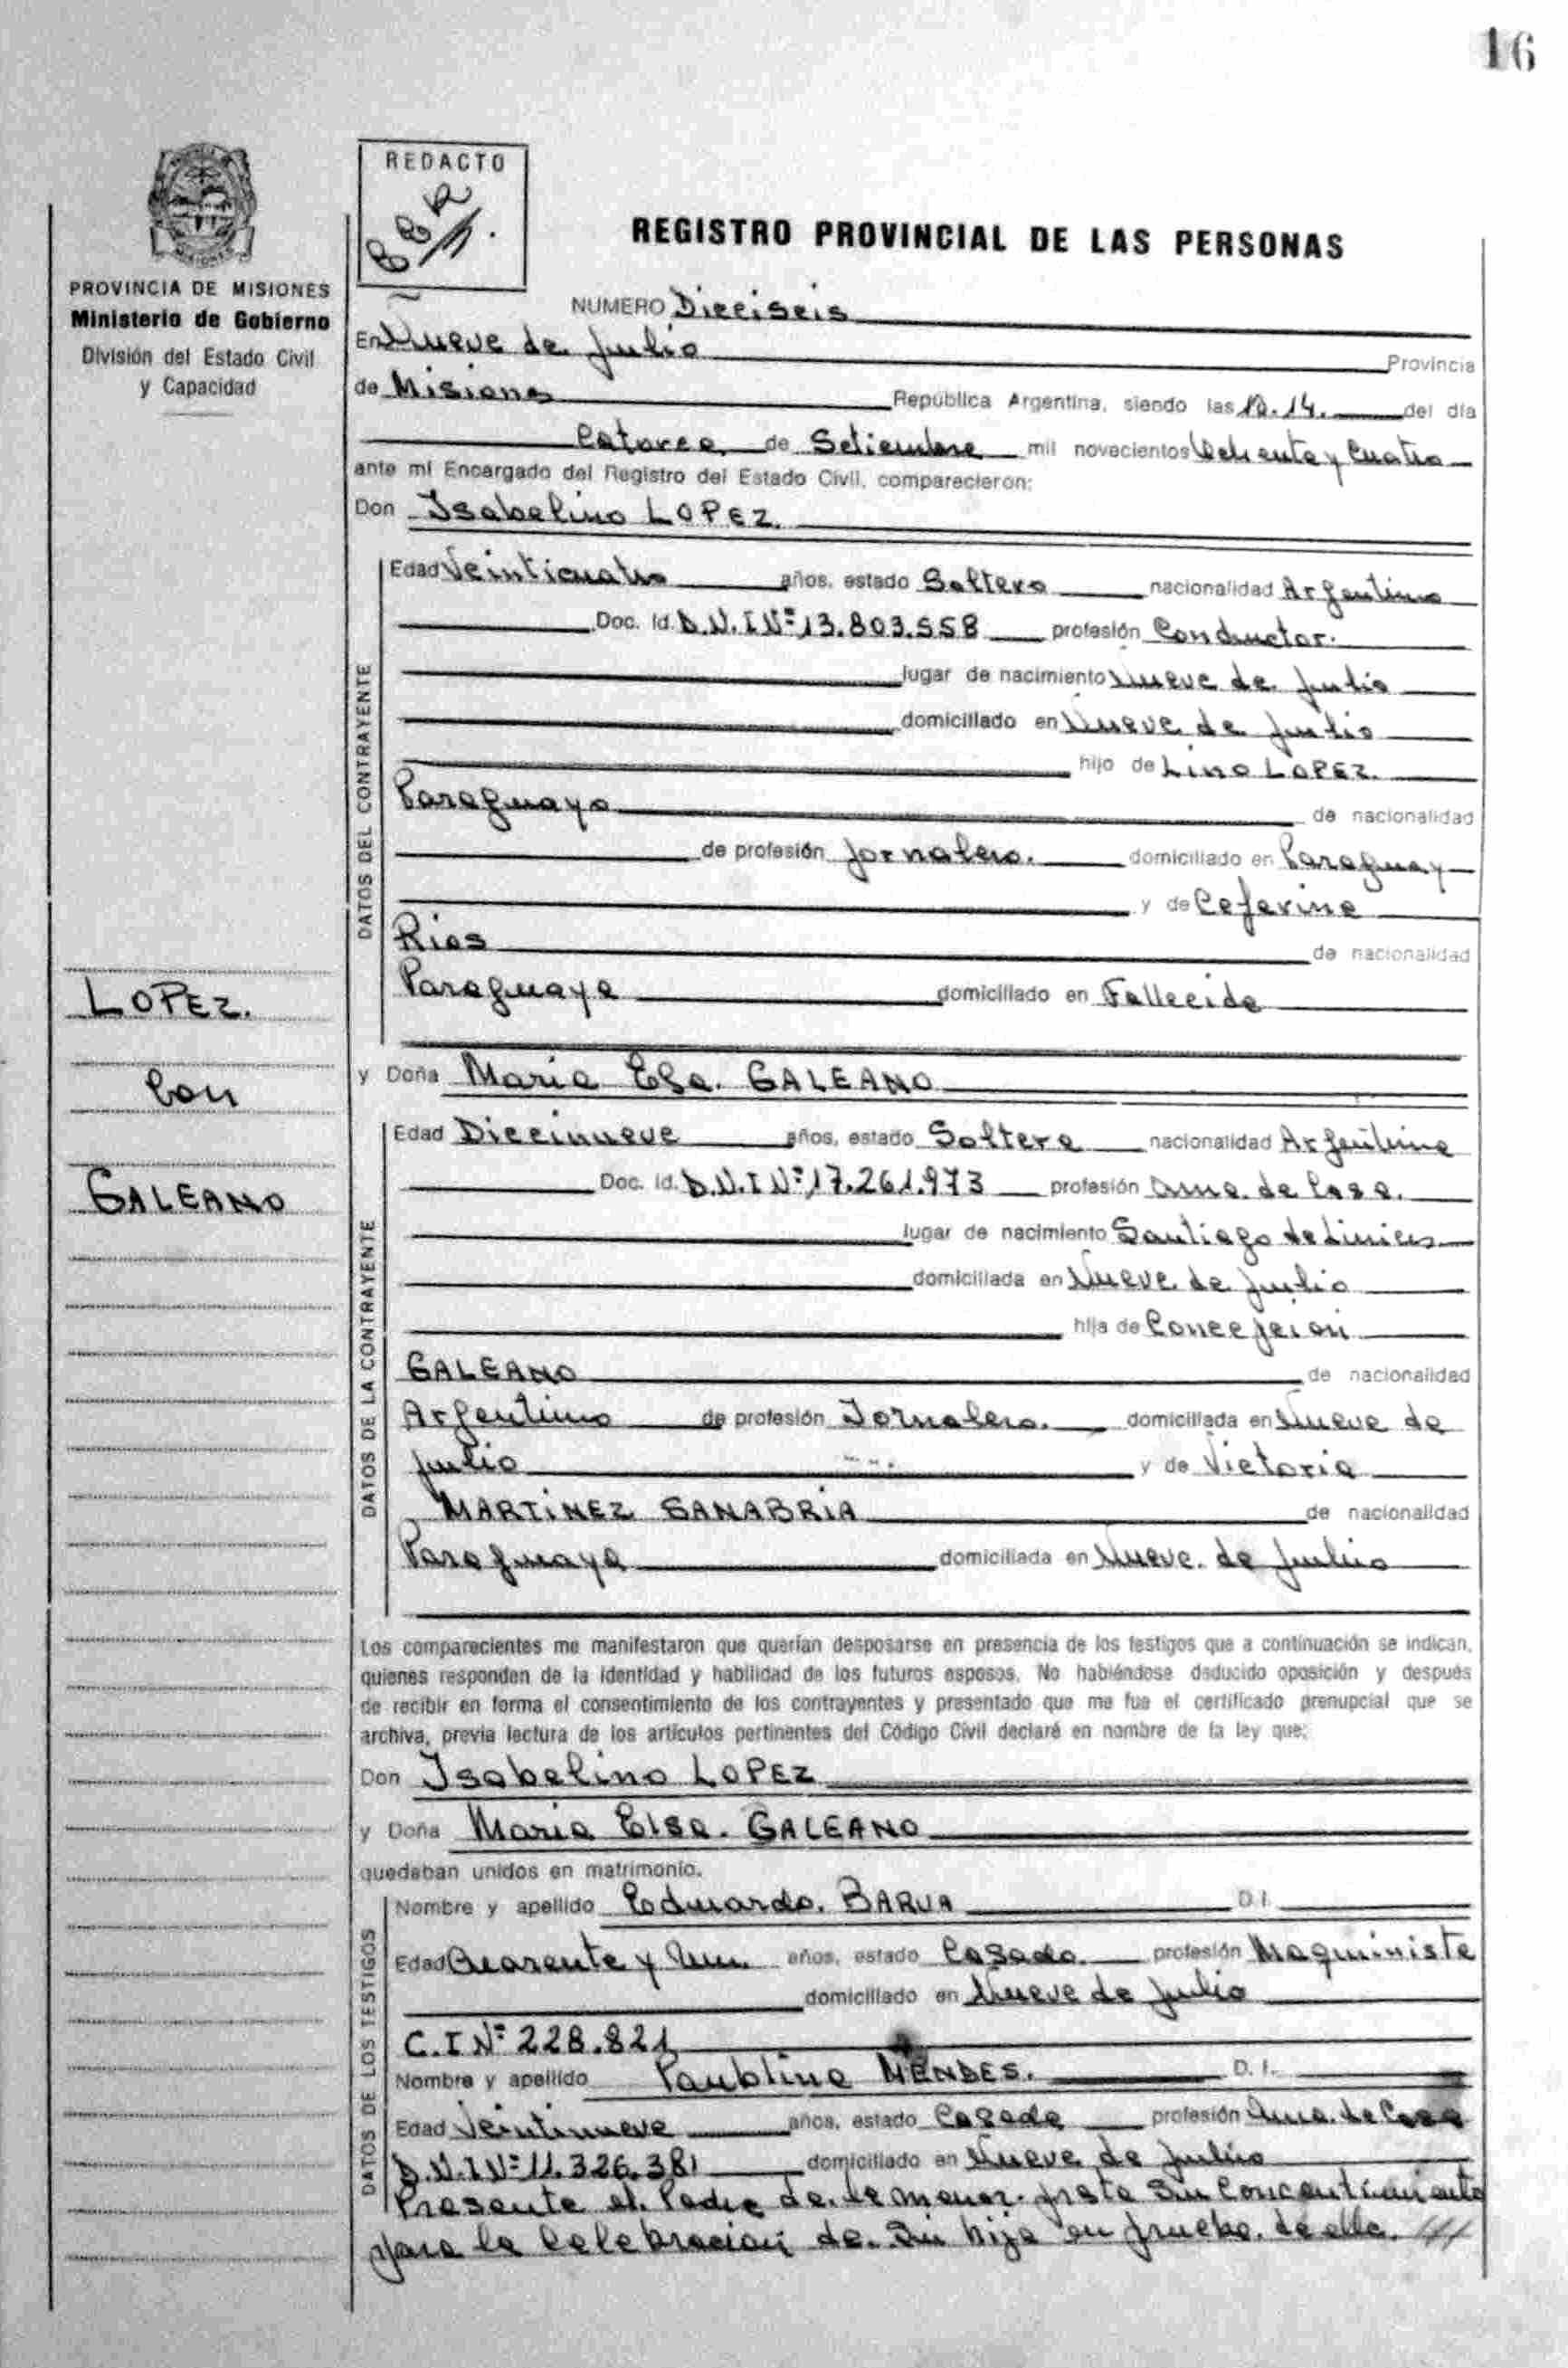 16
REDACTO
REGISTRO PROVINCIAL DE LAS PERSONAS
PROVINCIA DE MISIONES
Ministerio de Gobierno
División del Estado Civil
y Capacidad
NUMERO Dieciseis
En Nueve de Julio Provincia
de Misiones República Argentina, siendo las 10.14. del día
Catorce de Setiembre mil novecientos Ochenta y Cuatro
ante mi Encargado del Registro del Estado Civil, comparecieron:
Don Isabelino LOPEZ.
DATOS DEL CONTRAYENTE
Edad Veinticuatro años, estado Soltero nacionalidad Argentino
Doc. Id. D.N.I Nº 13.803.558 profesión Conductor.
lugar de nacimiento Nueve de Julio
domiciliado en Nueve de Julio
hijo de Lino LOPEZ.
Paraguayo de nacionalidad
de profesión Jornalero. domiciliado en Paraguay
y de Ceferina
Rios de nacionalidad
Paraguaya domiciliado en Fallecida
LOPEZ.
Con
GALEANO
y Doña Maria Elsa. GALEANO
DATOS DE LA CONTRAYENTE
Edad Diecinueve años, estado Soltera nacionalidad Argentina
Doc. Id. D.N.I Nº 17.261.973 profesión Ama. de Casa.
lugar de nacimiento Santiago de Liniers
domiciliada en Nueve de Julio
hija de Concepcion
GALEANO de nacionalidad
Argentino de profesión Jornalero. domiciliada en Nueve de
Julio y de Victoria
MARTINEZ SANABRIA de nacionalidad
Paraguaya domiciliada en Nueve. de Julio
Los comparecientes me manifestaron que querían desposarse en presencia de los testigos que a continuación se indican,
quienes responden de la identidad y habilidad de los futuros esposos. No habiéndose deducido oposición y después
de recibir en forma el consentimiento de los contrayentes y presentado que me fue el certificado prenupcial que se
archiva, previa lectura de los artículos pertinentes del Código Civil declaré en nombre de la ley que:
Don Isabelino LOPEZ
y Doña Maria Elsa. GALEANO
quedaban unidos en matrimonio.
DATOS DE LOS TESTIGOS
Nombre y apellido Eduardo. BARUA D.I.
Edad Cuarenta y Un. años, estado Casado. profesión Maquinista
domiciliado en Nueve de Julio
C.I Nº 228.821
Nombre y apellido Paublina MENDES. D.I.
Edad Veintinueve años, estado Casada profesión Ama. de Casa
D.N.I Nº 11.326.381 domiciliado en Nueve de Julio
Presente el. Padre de. la menor. presta Su Concentimiento
para la Celebracion de. Su hija en prueba. de ello. ///